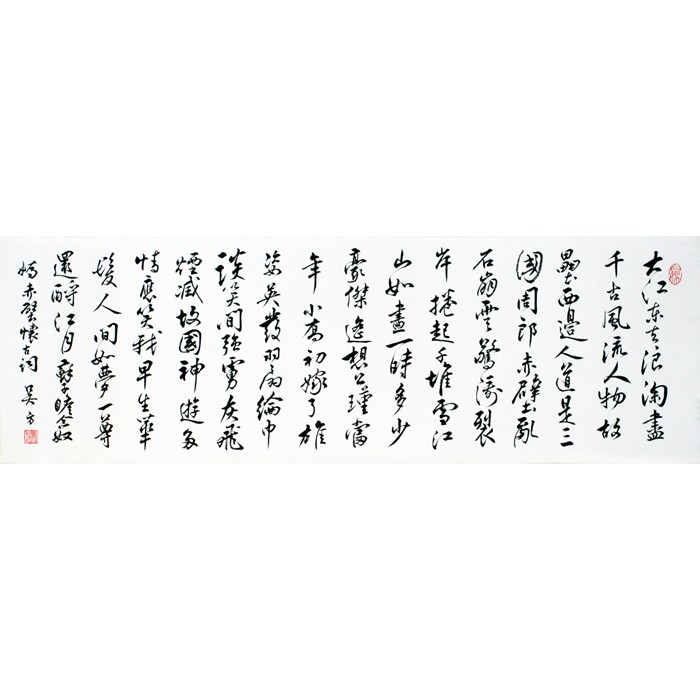 大江东去浪淘盡
千古風流人物故
壘西邊人道是三
國周郎赤壁亂
石崩雲驚濤裂
岸捲起千堆雪江
山如畫一時多少
豪傑遙想公瑾當
年小喬初嫁了雄
姿英發羽扇綸巾
談笑間強虜灰飛
煙滅故國神遊多
情應笑我早生華
髮人間如夢一尊
還酹江月蘇子瞻念奴
嬌赤壁懷古詞 吴方